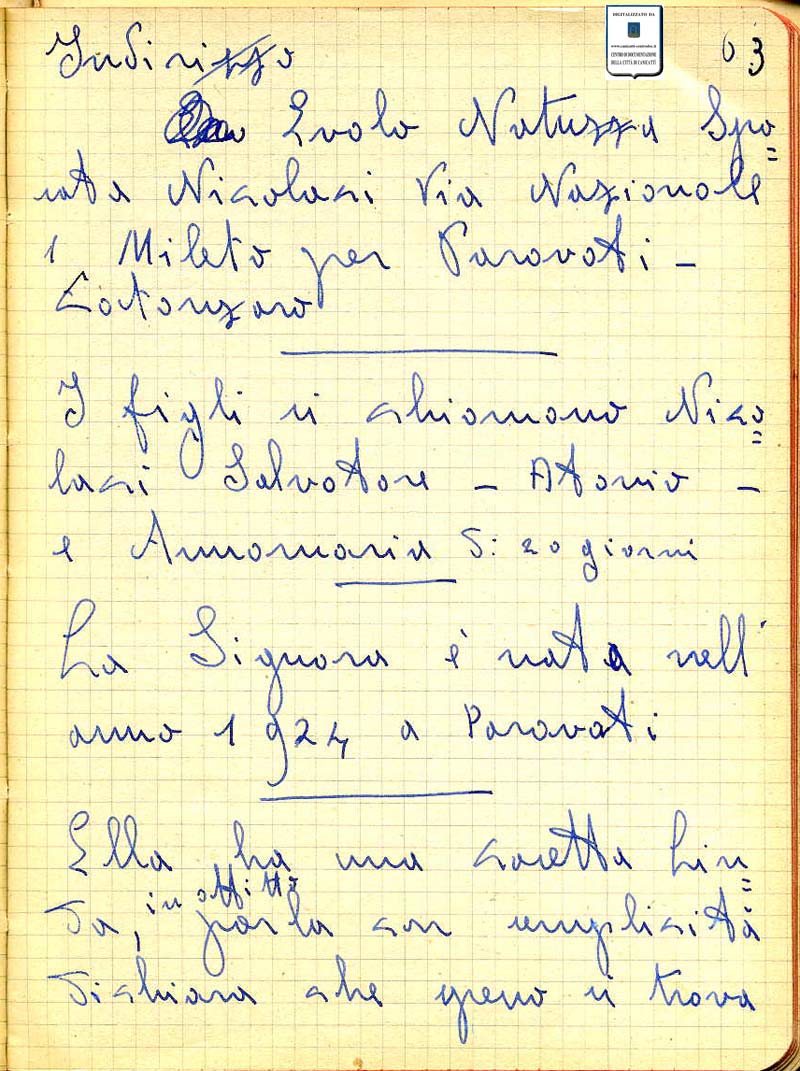 DIGITALIZZATO DA
www.canicatti-centrodoc.it
CENTRO DI DOCUMENTAZIONE
DELLA CITTÀ DI CANICATTÌ
63
Indirizzo
Evolo Natuzza Spo=
sata Nicolaci Via Nazionale
1 Mileto per Paravati -
Catanzaro
I figli si chiamano Nico=
laci Salvatore - Atonio -
e Annamaria di 20 giorni
La Signora è nata nell'
anno 1924 a Paravati
Ella ha una casetta Lin=
da, in affitto parla con semplicità
dichiara che spesso si trova